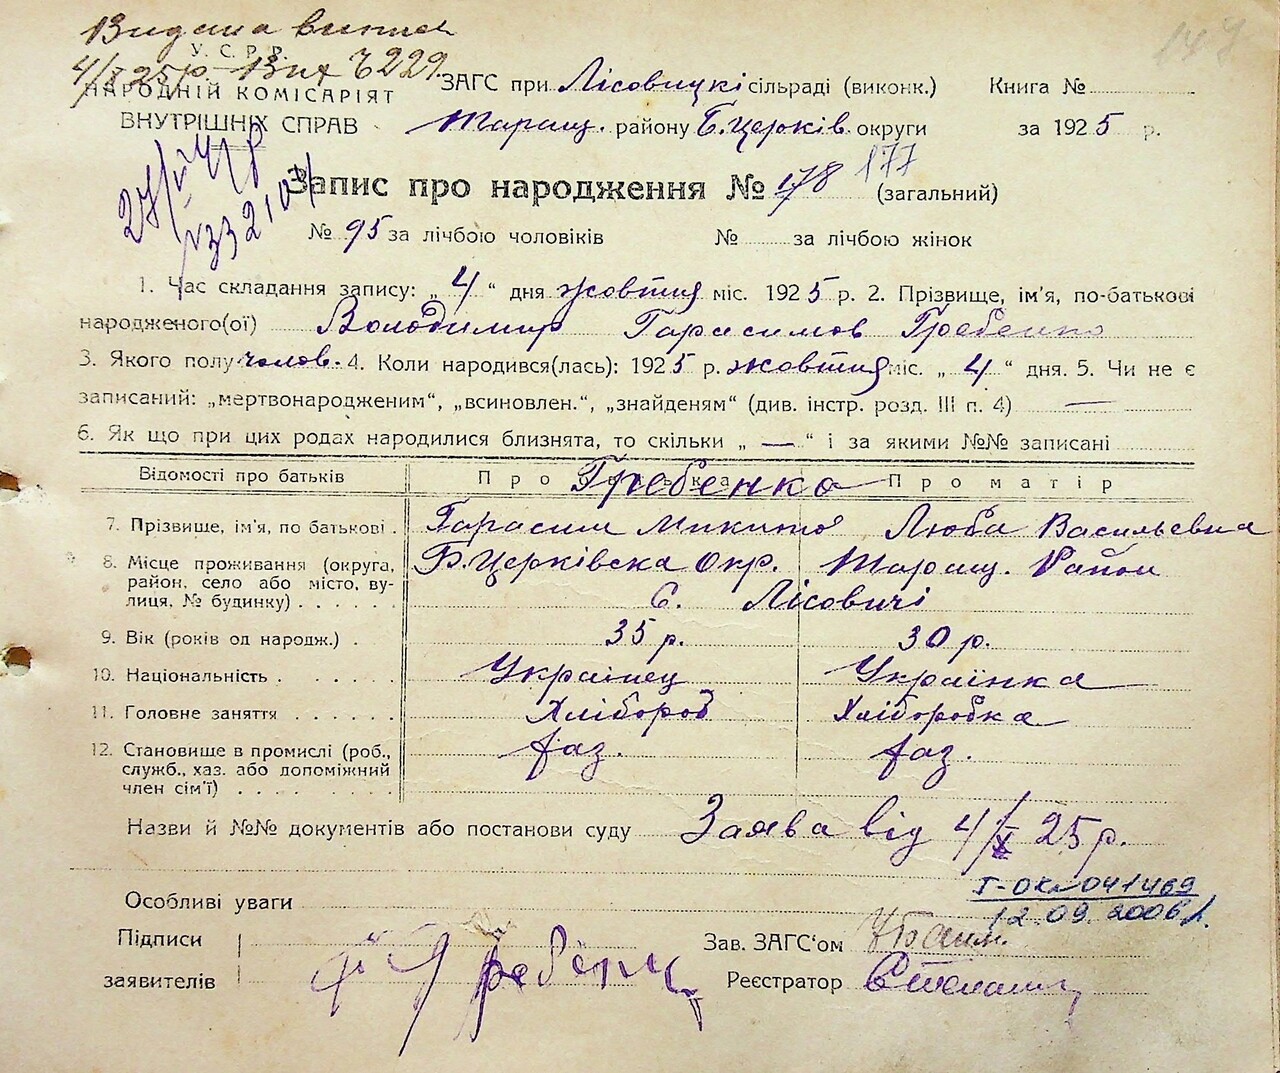 Видана витяг 149
У.С.Р.Р.
4/X 25 р. Вих 6229.
НАРОДНІЙ КОМІСАРІЯТ
ВНУТРІШНІХ СПРАВ
ЗАГС при Лісовицкі сільраді (виконк.) Книга №
Таращ. району Б. Церків. округи за 1925 р.
Запис про народження № 178 177 (загальний)
№ 95 за лічбою чоловіків № за лічбою жінок
1. Час складання запису: „ 4 “ дня жовтня міс. 1925 р. 2. Прізвище, ім'я, по-батькові
народженого(ої) Володимир Гарасимов Гребенко
3. Якого полу чолов. 4. Коли народився(лась): 1925 р. жовтня міс. „ 4 “ дня. 5. Чи не є
записаний: „мертвонародженим“, „всиновлен.“, „знайденям“ (див. інстр. розд. III п. 4) —
6. Як що при цих родах народилися близнята, то скільки „ — “ і за якими №№ записані
Відомості про батьків Про батька Гребенко Про матір
7. Прізвище, ім'я, по батькові . Гарасим Микито Люба Васильевна
8. Місце проживання (округа, район, село або місто, вулиця, № будинку) . . . . . Б. Церківска Окр. Таращ. Район
С. Лісовичі
9. Вік (років од народж.) . 35 р. 30 р.
10. Національність . . . . Українец Українка
11. Головне заняття . . . . . . Хлібороб Хліборобка
12. Становище в промислі (роб., служб., хаз. або допоміжний член сім'ї) . . . . . . . . хаз. хаз.
Назви й №№ документів або постанови суду Заява від 4/X 25 р.
Особливі уваги І-ОК №041469
12.09.2006р.
Підписи
заявителів
Зав. ЗАГС'ом
Реєстратор